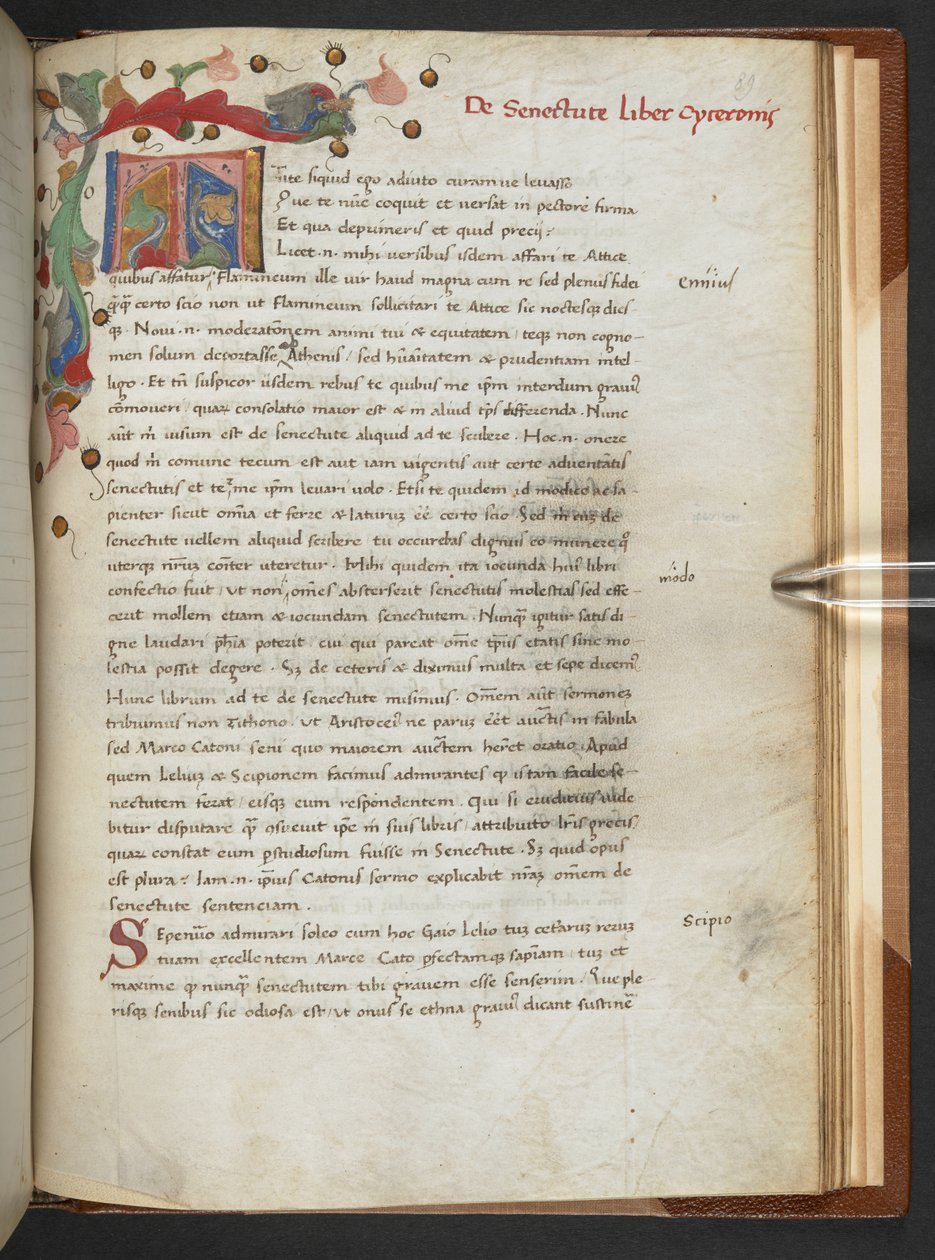 89
De Senectute liber Cyceronis
Tite siquid ego adiuto curam ve levasso
Que te nūc coquit et versat in pectore firma
Et qua deprimeris et quid precij:
Licet .n. mihi versibus isdem affari te Attice
quibus affatur Flamineum ille vir haud magna cum re sed plenus fidei
Ennius
q̄q̄ certo scio non ut Flamineum sollicitari te Attice sic noctesq dies
q . Novi .n. moderatōnem animi tui & equitatem / teq non cogno-
men solum deportasse Athenis / sed hūāītatem & prudentiam intel-
ligo . Et tn̄ suspicor iisdem rebus te quibus me ip̄m interdum gravi9
cōmoveri / quaꝝ consolatio maior est & in aliud tp̄s differenda . Nunc
aūt m̄ visum est de senectute aliquid ad te scribere . Hoc .n. onere
quod m̄ comune tecum est aut iam urgentis aut certe adventātis
senectutis et te & me ip̄m levari volo . Etsi te quidem id modice ac sa-
pienter sicut om̄ia et ferre & laturuꝫ ēē certo scio . Sed m̄ cuꝫ de
senectute vellem aliquid scribere / tu occurrebas dignus eo munere q̊
uterq nr̄uꝫ cōiter uteretur . Mihi quidem ita iocunda hui9 libri
modo
confectio fuit / ut non om̄es absterserit senectutis molestias / sed effe-
cerit mollem etiam & iocundam senectutem . Nunq̄ igitur satis di-
gne laudari ph̄ia poterit cui qui pareat om̄e tp̄us etatis sine mo-
lestia possit degere . Sꝫ de ceteris & diximus multa et sepe dicem9
Hunc librum ad te de senectute misimus . Om̄em aūt sermonem
tribuimus non Tithono . ut Aristoce9 ne paruꝫ eēt auctis in fabula
sed Marco Catoni seni quo maiorem auctem heret oratio . Apud
quem Leliuꝫ & Scipionem facimus admirantes q istam facile se-
nectutem ferat / eisq eum respondentem . Qui si eruditius vide
bitur disputare q̄ 9suevit ip̄e in suis libris / attribuito lr̄is grecis
quaꝝ constat eum pstudiosum fuisse in Senectute . Sꝫ quid opus
est plura: Iam .n. ip̄ius Catonis sermo explicabit nr̄aꝫ om̄em de
senectute sentenciam .
Sepenūo admirari soleo cum hoc Gaio Lelio tuꝫ cetaruꝫ reruꝫ
Scipio
tuam excellentem Marce Cato pfectamq sapīam / tuꝫ et
maxime q nunq̄ senectutem tibi gravem esse senserim . Que ple
risq senibus sic odiosa est / ut onus se ethna gravi9 dicant sustinē